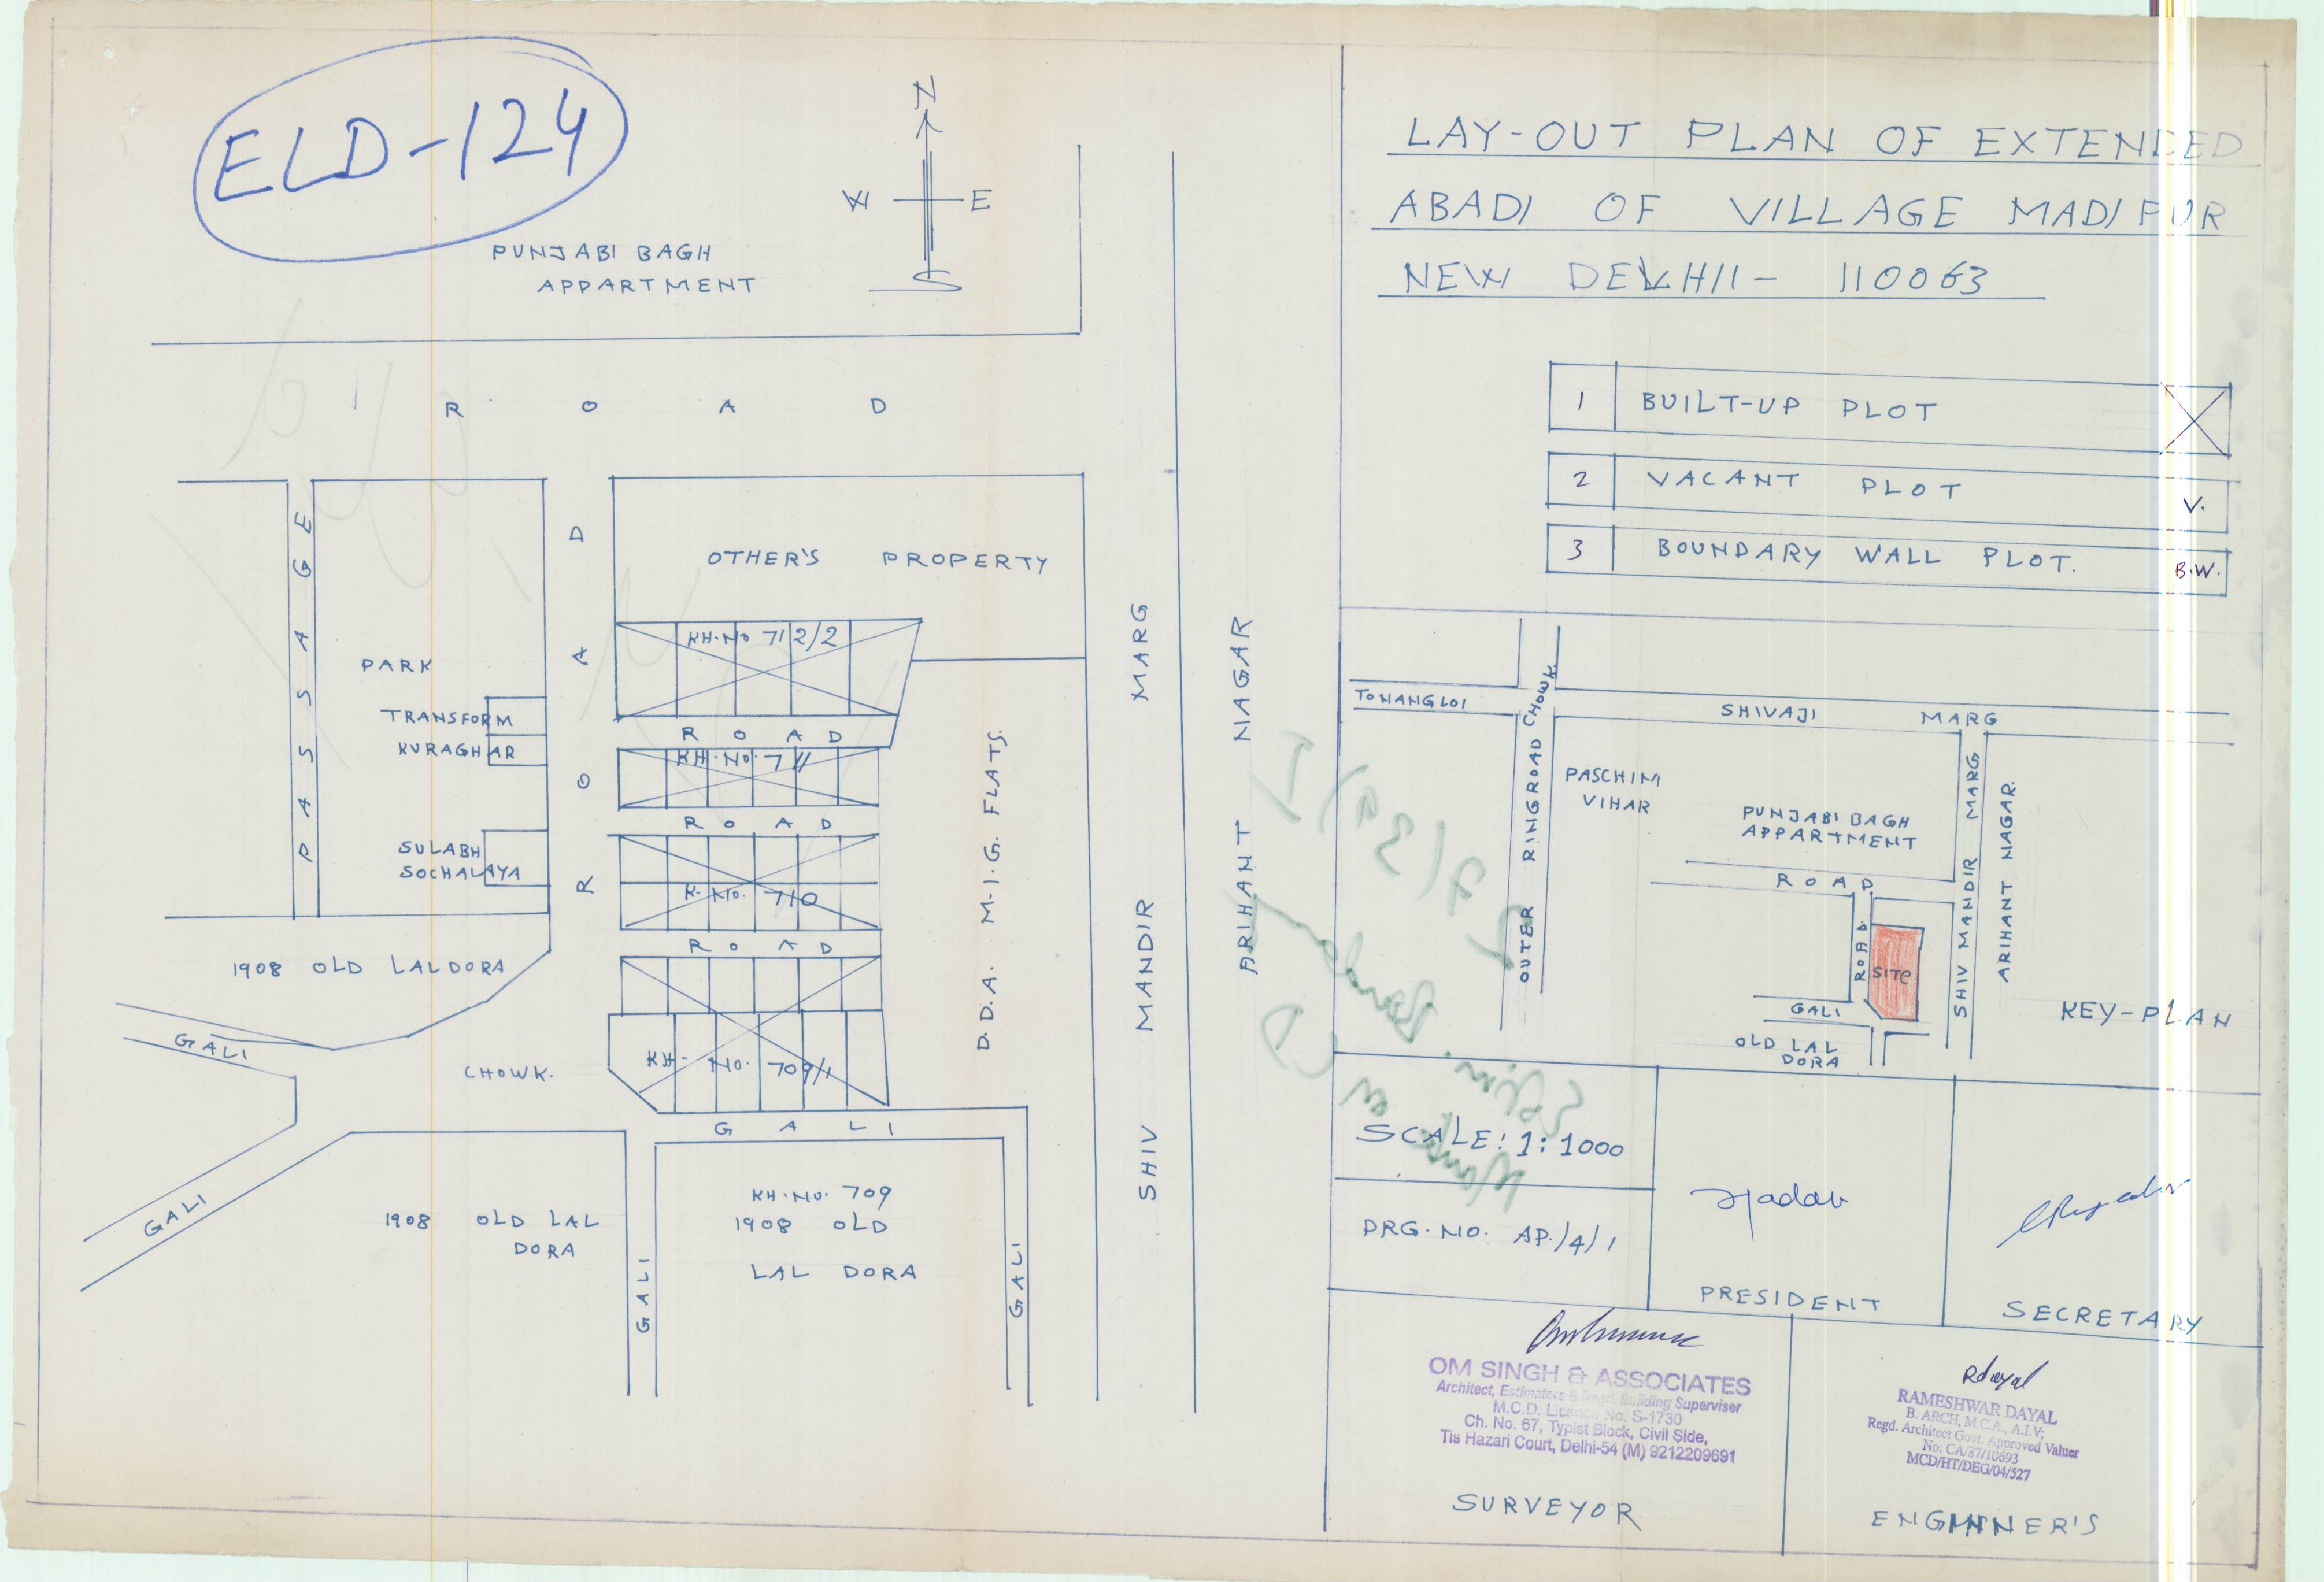 ELD-124
N
W E
S
PUNJABI BAGH
APPARTMENT
ROAD
PASSAGE
PARK
TRANSFORM
KURAGHAR
SULABH
SOCHALAYA
ROAD
OTHER'S PROPERTY
KH.No 712/2
ROAD
KH.No. 711
ROAD
K. No. 710
ROAD
KH- No. 709/1
D.D.A. M.I.G. FLATS.
SHIV MANDIR MARG
ARIHANT NAGAR
1908 OLD LALDORA
GALI
CHOWK.
GALI
GALI
1908 OLD LAL
DORA
GALI
KH.NO. 709
1908 OLD
LAL DORA
GALI
LAY-OUT PLAN OF EXTENDED
ABADI OF VILLAGE MADIPUR
NEW DELHII- 110063
1 BUILT-UP PLOT
2 VACANT PLOT V.
3 BOUNDARY WALL PLOT. B.W.
TO NANGLOI
SHIVAJI MARG
OUTER RINGROAD CHOWK.
PASCHIM
VIHAR
PUNJABI BAGH
APPARTMENT
ROAD
ROAD
SITE
SHIV MANDIR MARG
ARIHANT NAGAR.
GALI
OLD LAL
DORA
KEY-PLAN
SCALE: 1:1000
DRG. NO. AP./4/1
Yadav
PRESIDENT
SECRETARY
OM SINGH & ASSOCIATES
Architect, Estimaters & Regd. Building Superviser
M.C.D. Licence No. S-1730
Ch. No. 67, Typist Block, Civil Side,
Tis Hazari Court, Delhi-54 (M) 9212209691
SURVEYOR
Rdayal
RAMESHWAR DAYAL
B. ARCH, M.C.A., A.I.V;
Regd. Architect Govt. Approved Valuer
No: CA/87/10693
MCD/HT/DEG/04/527
ENGINNER'S